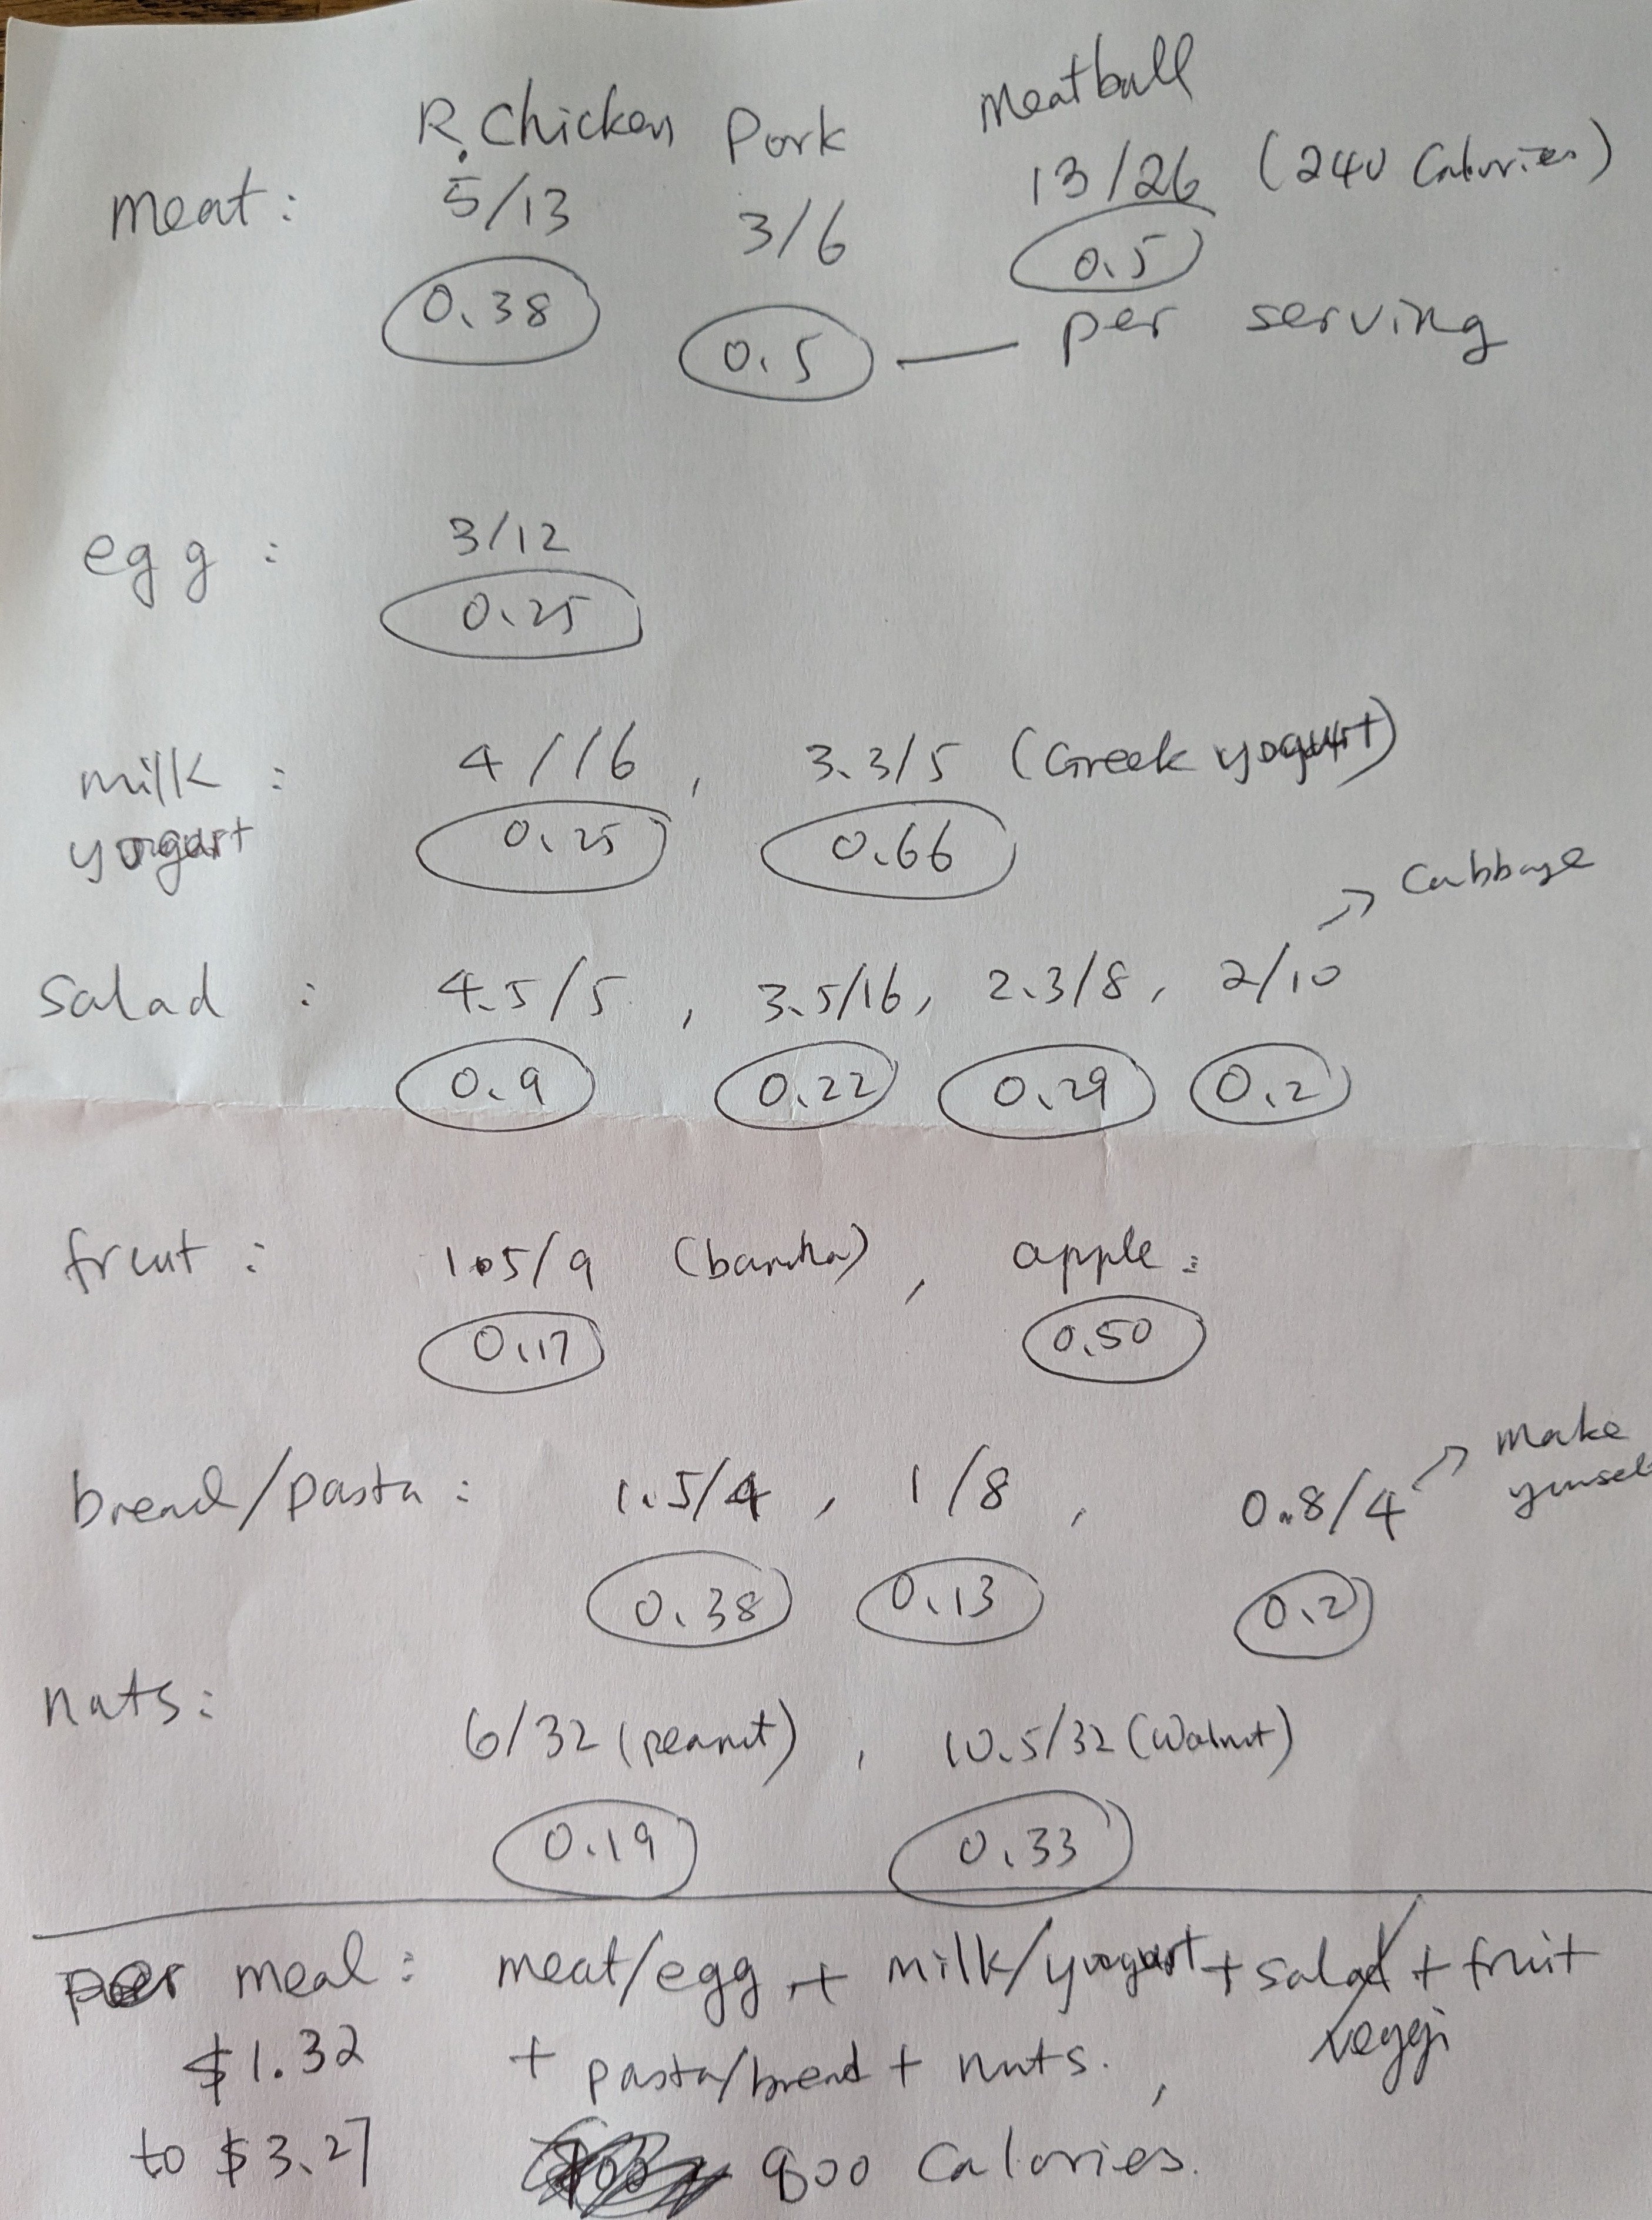 R. Chicken Pork Meatball
meat: 5/13 3/6 13/26 (240 Calories)
0.38 0.5 — per serving 0.5
egg: 3/12
0.25
milk: 4/16, 3.3/5 (Greek yogurt)
yogurt 0.25 0.66
→ Cabbage
Salad: 4.5/5, 3.5/16, 2.3/8, 2/10
0.9 0.22 0.29 0.2
fruit: 1.5/9 (banana), apple:
0.17 0.50
bread/pasta: 1.5/4, 1/8, 0.8/4 → make yourself
0.38 0.13 0.2
nuts:
6/32 (peanut), 10.5/32 (Walnut)
0.19 0.33
per meal: meat/egg + milk/yogurt + salad/veggi + fruit
$1.32 + pasta/bread + nuts.,
to $3.27 800 Calories.